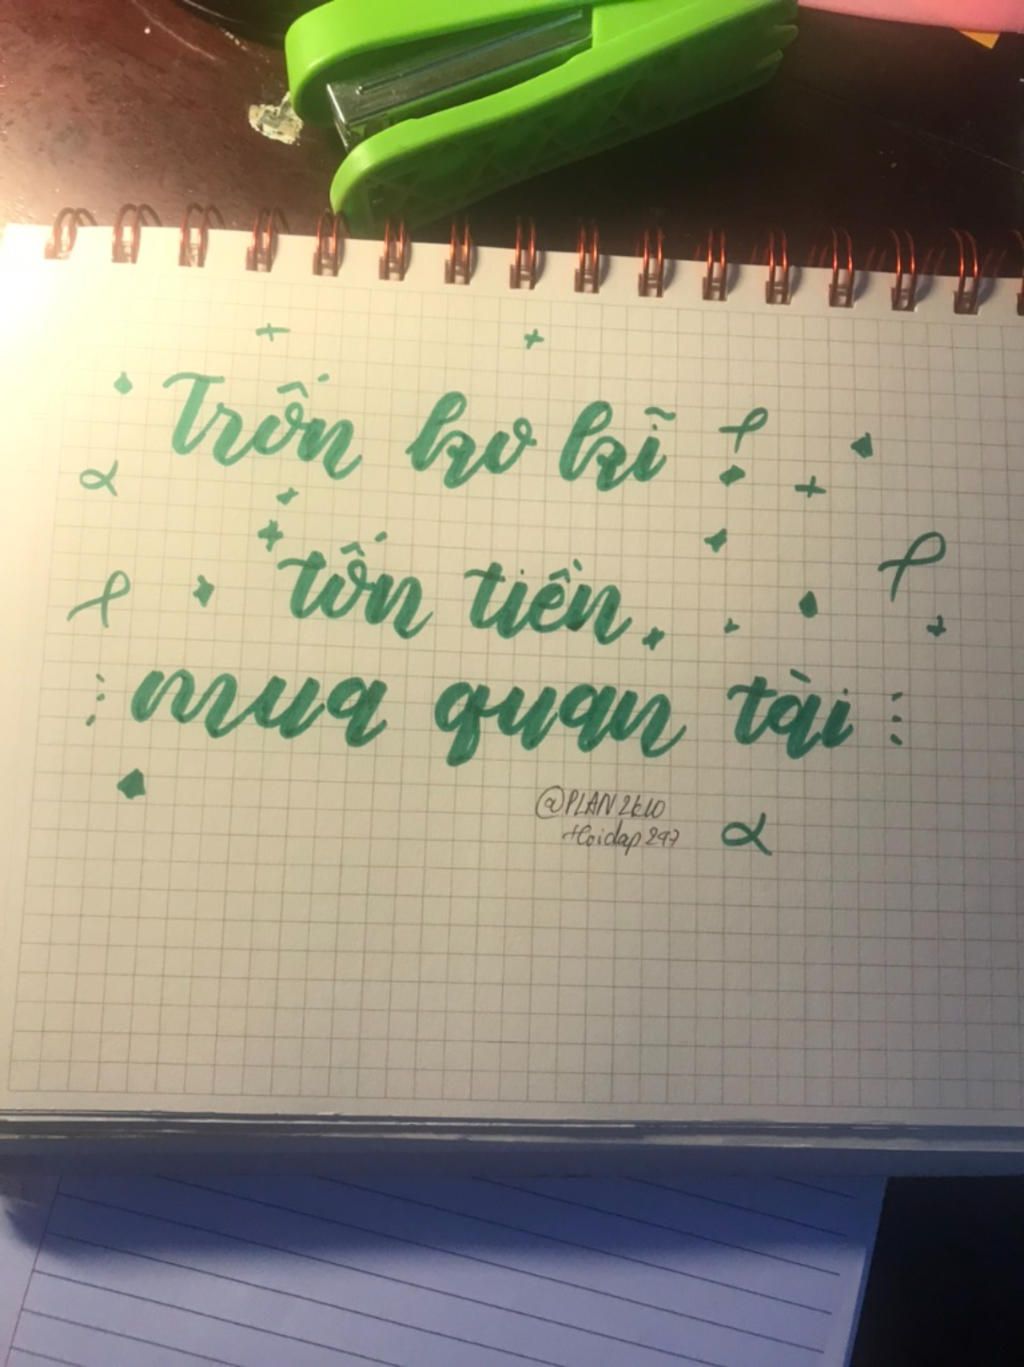 Trốn ko kĩ
tốn tiền
mua quan tài
@PLAN2k10
+Coidap247